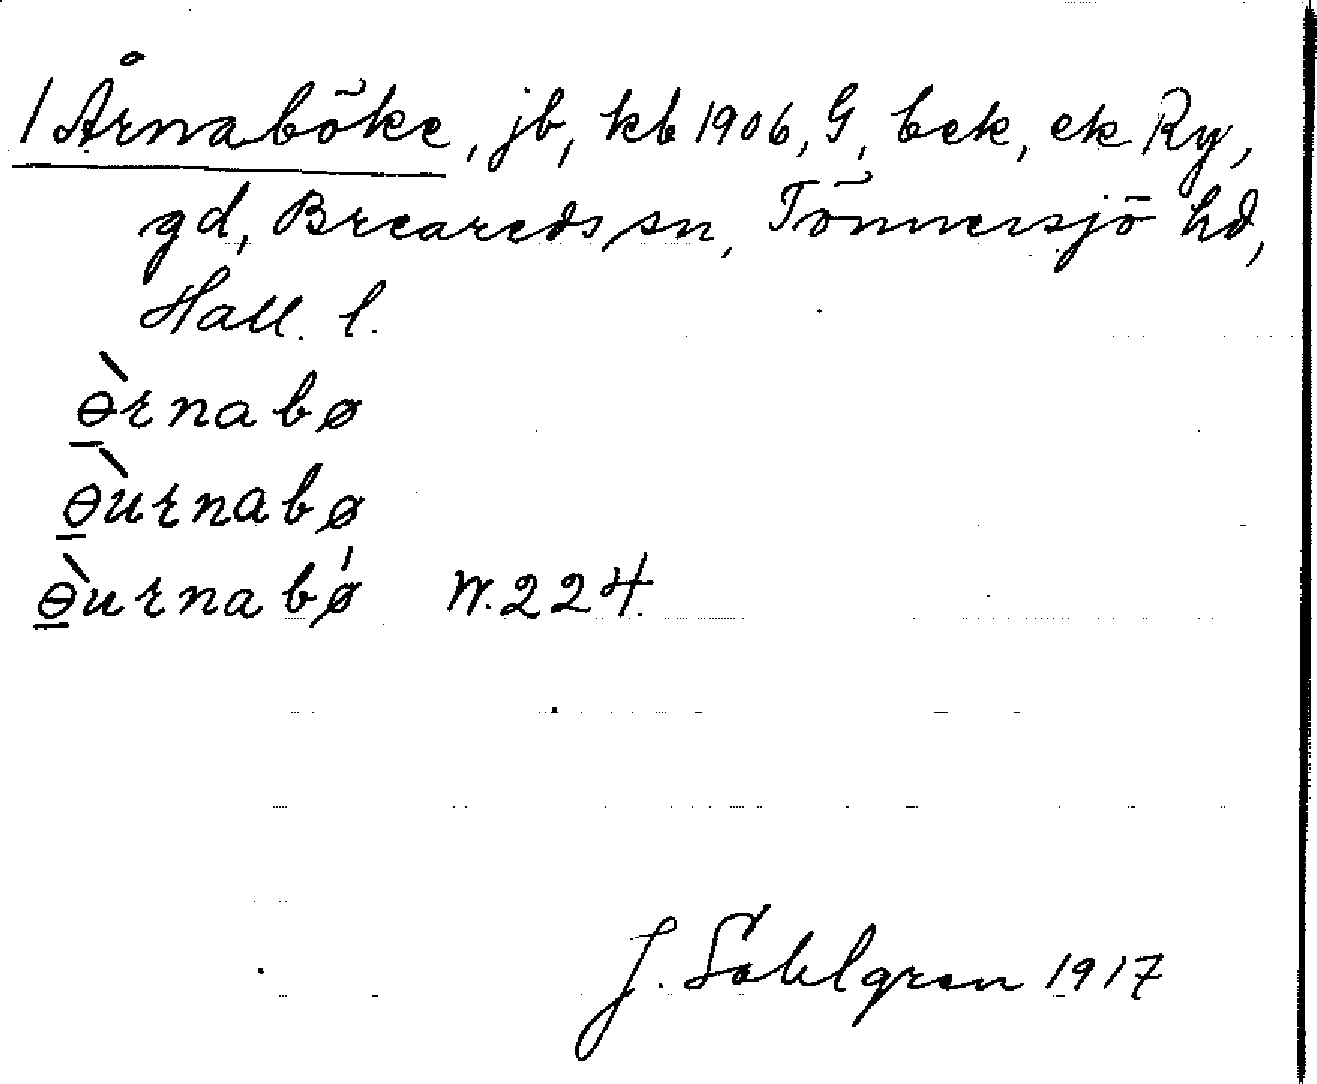 1 Årnaböke, jb, kb 1906, G, bek, ek Ry,
gd, Breareds sn, Tönnersjö hd,
Hall. l.
ɵ̲̀rnabø
ɵ̲̀urnabø
ɵ̲̀urnabø̍ W. 224.
J. Sahlgren 1917